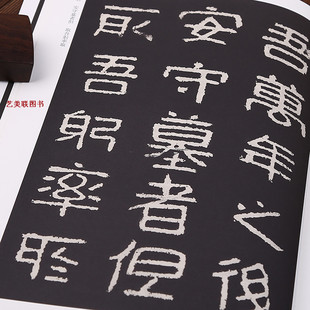 吾萬年之後
安守墓者但
取吾躬率所
艺美联图书